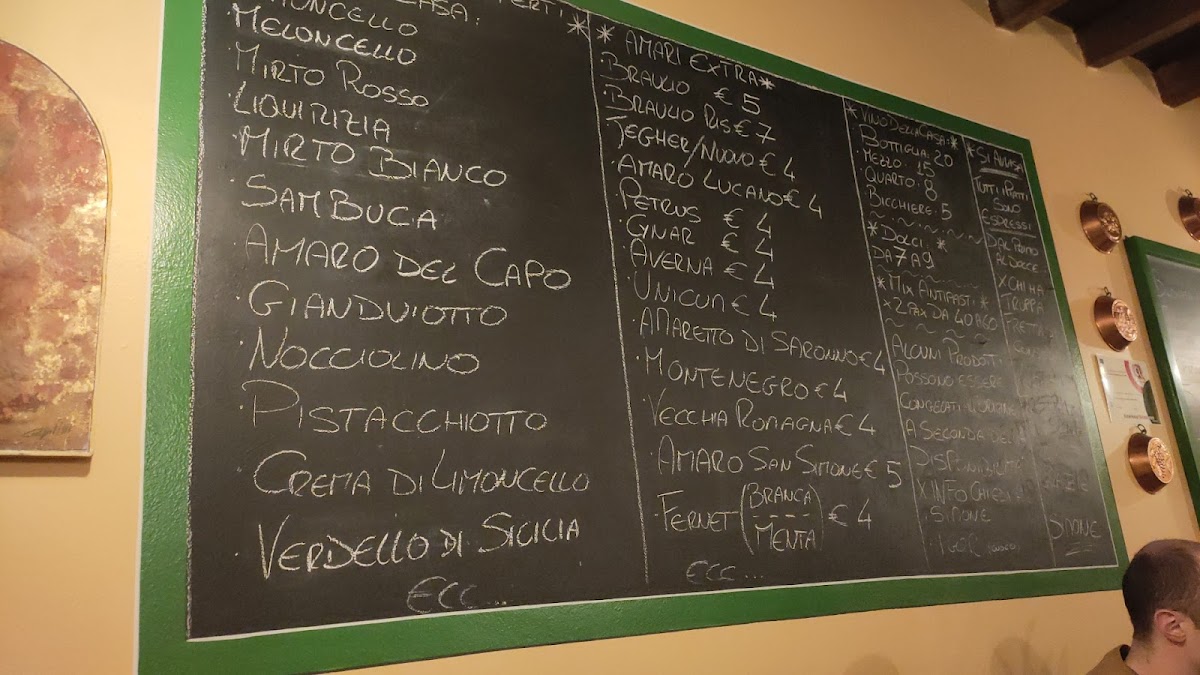 CASA:
MELONCELLO
MIRTO ROSSO
LIQUIRIZIA
MIRTO BIANCO
SAMBUCA
AMARO DEL CAPO
GIANDUIOTTO
NOCCIOLINO
PISTACCHIOTTO
CREMA DI LIMONCELLO
VERDELLO DI SICILIA
ECC...
* AMARI EXTRA *
BRAULIO € 5
BRAULIO RIS € 7
JEGHER/NUOVO € 4
AMARO LUCANO € 4
PETRUS € 4
CYNAR € 4
AVERNA € 4
UNICUM € 4
AMARETTO DI SARONNO € 4
MONTENEGRO € 4
VECCHIA ROMAGNA € 4
AMARO SAN SIMONE € 5
FERNET (BRANCA
MENTA) € 4
ECC...
* VINO DELLA CASA: *
BOTTIGLIA: 20
MEZZO: 15
QUARTO: 8
BICCHIERE: 5
* DOLCI: *
DA 7 A 9
* MIX ANTIPASTI *
ALCUNI PRODOTTI
POSSONO ESSERE
A SECONDA DEL
X INFO CHIEDI
SIMONE
IGOR
* SI AVVISA
TUTTI I PIATTI
SONO
ESPRESSI
DAL PRIMO
AL DOLCE:
X CHI HA
TROPPA
GRAZIE
SIMONE